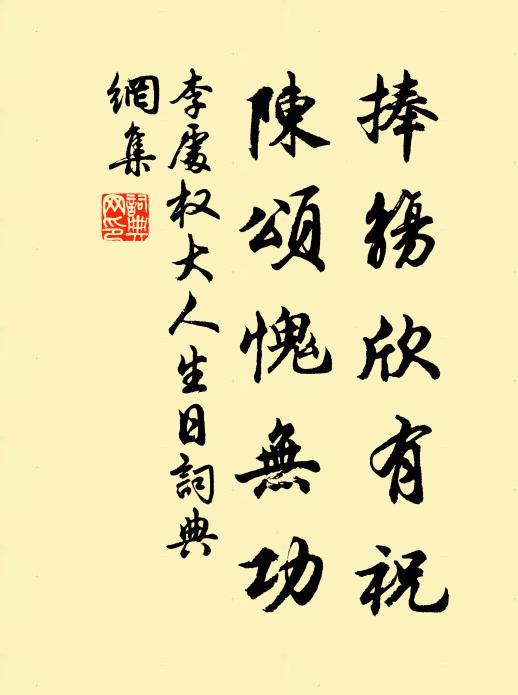 捧觴欣有祝
陳頌愧無功
李處权大人生日詞典
網集
詞典
网印